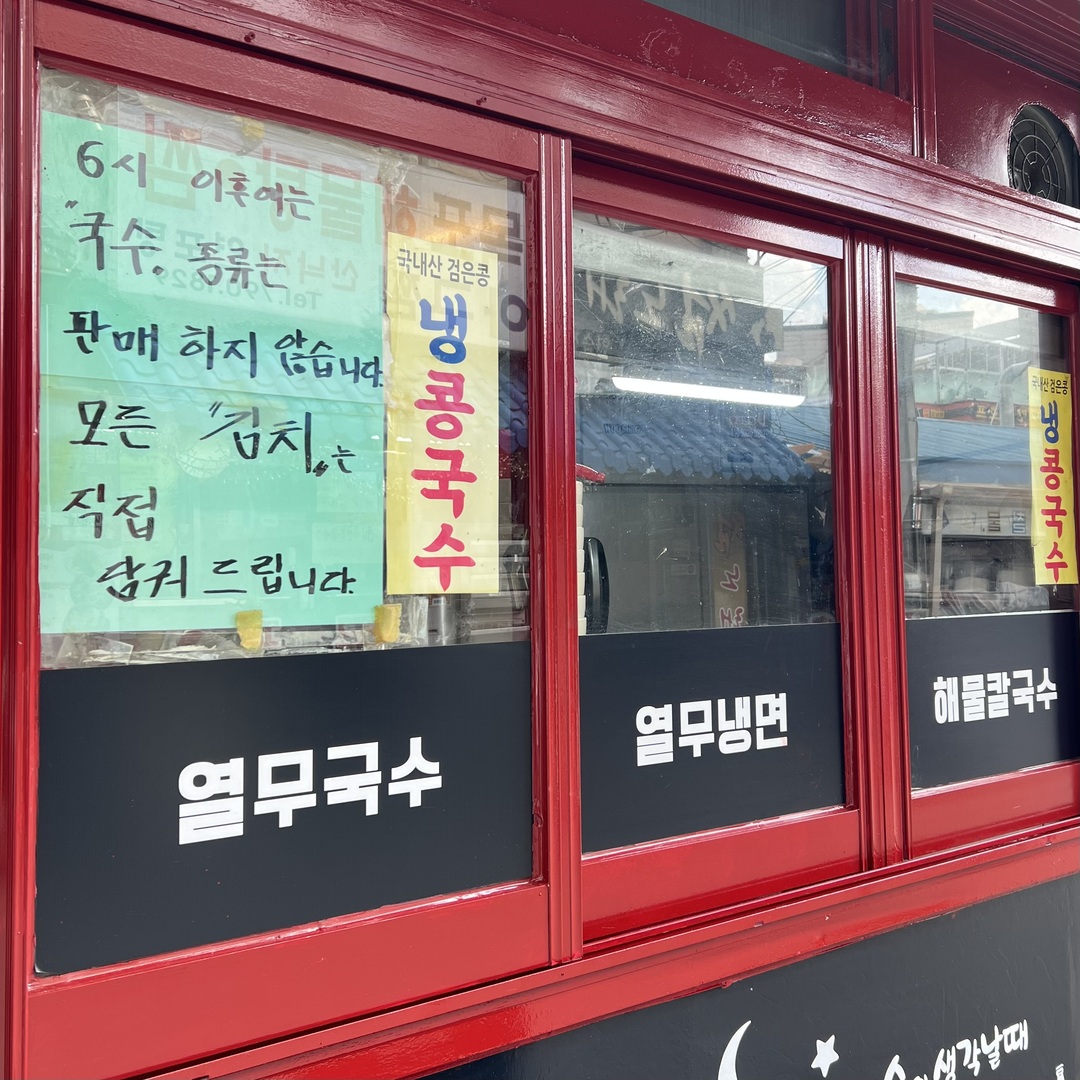 6시 이후에는
"국수" 종류는
판매 하지 않습니다.
모든 "김치"는
직접
담궈 드립니다.
국내산 검은콩
냉콩국수
국내산 검은콩
냉콩국수
열무국수
열무냉면
해물칼국수
생각날때